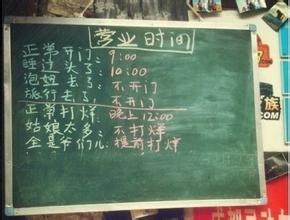 营业时间
正常开门：9:00
睡过头了：10:00
泡妞去了：不开门
旅行去了：不开门
正常打烊：晚上12:00
姑娘太多：不打烊
全是爷们儿：提前打烊
族